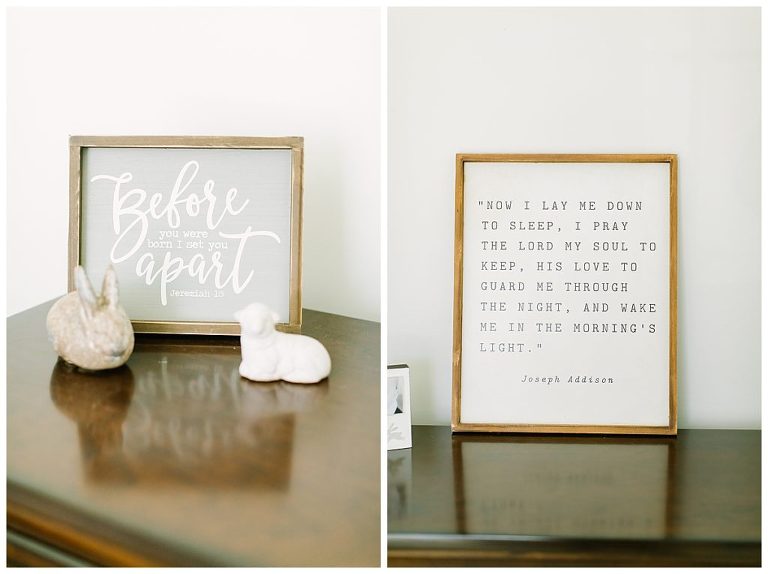 Before
you were
born I set you
apart
Jeremiah 1:5
"NOW I LAY ME DOWN
TO SLEEP, I PRAY
THE LORD MY SOUL TO
KEEP, HIS LOVE TO
GUARD ME THROUGH
THE NIGHT, AND WAKE
ME IN THE MORNING'S
LIGHT."
Joseph Addison